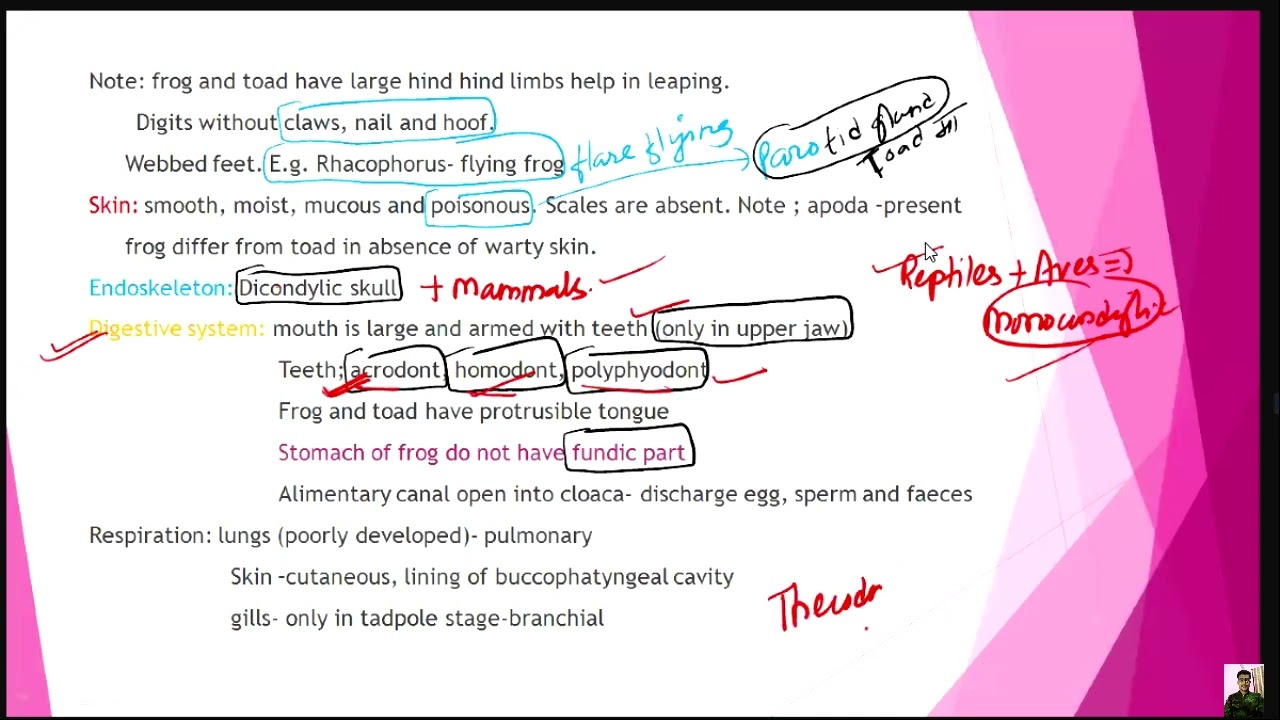 Note: frog and toad have large hind hind limbs help in leaping.
Digits without claws, nail and hoof.
Webbed feet. E.g. Rhacophorus- flying frog
flying
Parotid gland
Toad
Skin: smooth, moist, mucous and poisonous. Scales are absent. Note ; apoda -present
frog differ from toad in absence of warty skin.
Reptiles + Aves =>
Endoskeleton: Dicondylic skull + mammals.
Digestive system: mouth is large and armed with teeth (only in upper jaw)
Teeth; acrodont, homodont, polyphyodont
Frog and toad have protrusible tongue
Stomach of frog do not have fundic part
Alimentary canal open into cloaca- discharge egg, sperm and faeces
Respiration: lungs (poorly developed)- pulmonary
Skin -cutaneous, lining of buccophatyngeal cavity
gills- only in tadpole stage-branchial